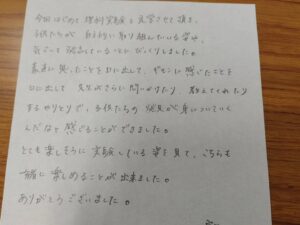 今回はじめて理科実験を見学させて頂き、
子供たちが自主的に取り組んでいる姿や、
していることにびっくりしました。
素直に思ったことを口に出して、ぎもんに感じたことを
口に出して 先生がさらに問いかけたり、教えてくれたり
するやりとりで、子供たちの 発見が身についていく
んだなと感じることができました。
とても楽しそうに実験している姿を見て、こちらも
一緒に楽しめることが出来ました。
ありがとうございました。